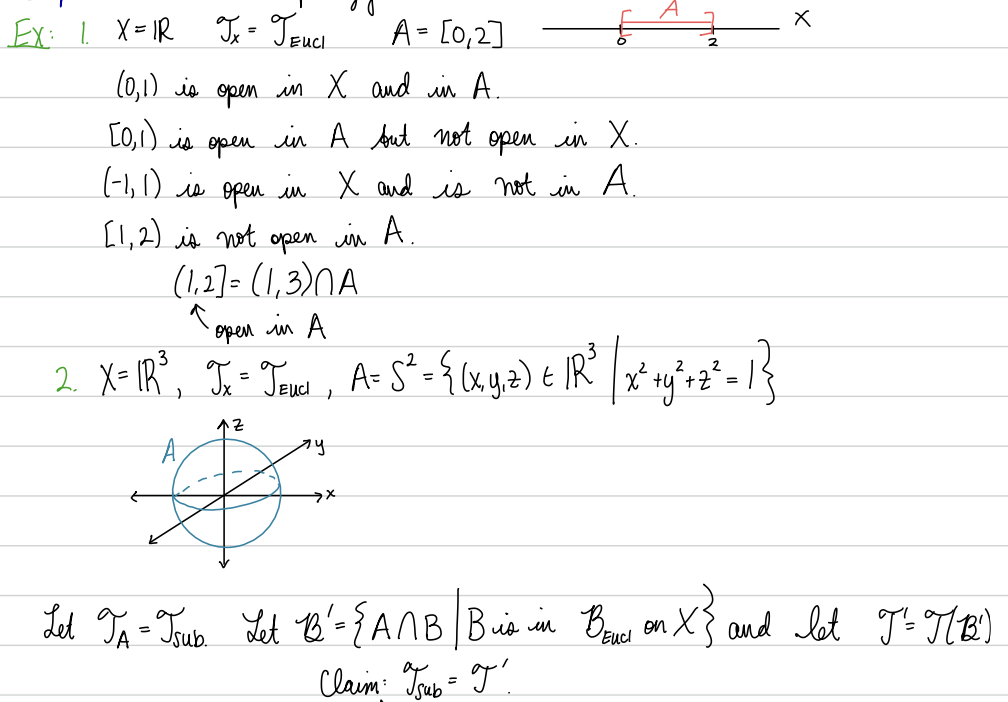 Ex: 1. X = ℝ 𝒯ₓ = 𝒯_Eucl A = [0,2]
A
0 2 X
(0,1) is open in X and in A.
[0,1) is open in A but not open in X.
(-1,1) is open in X and is not in A.
[1,2) is not open in A.
(1,2] = (1,3)∩A
open in A
2. X = ℝ³, 𝒯ₓ = 𝒯_Eucl, A = S² = {(x,y,z) ∈ ℝ³ | x²+y²+z² = 1}
A z y x
Let 𝒯_A = 𝒯_sub. Let ℬ' = {A∩B | B is in ℬ_Eucl on X} and let 𝒯' = 𝒯(ℬ')
Claim: 𝒯_sub = 𝒯'.